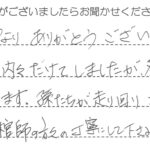 がございましたらお聞かせくださ
なり ありがとうござい
内々だけでしましたが
ます。孫たちが走り回り
棺師の方の丁寧にして下さ